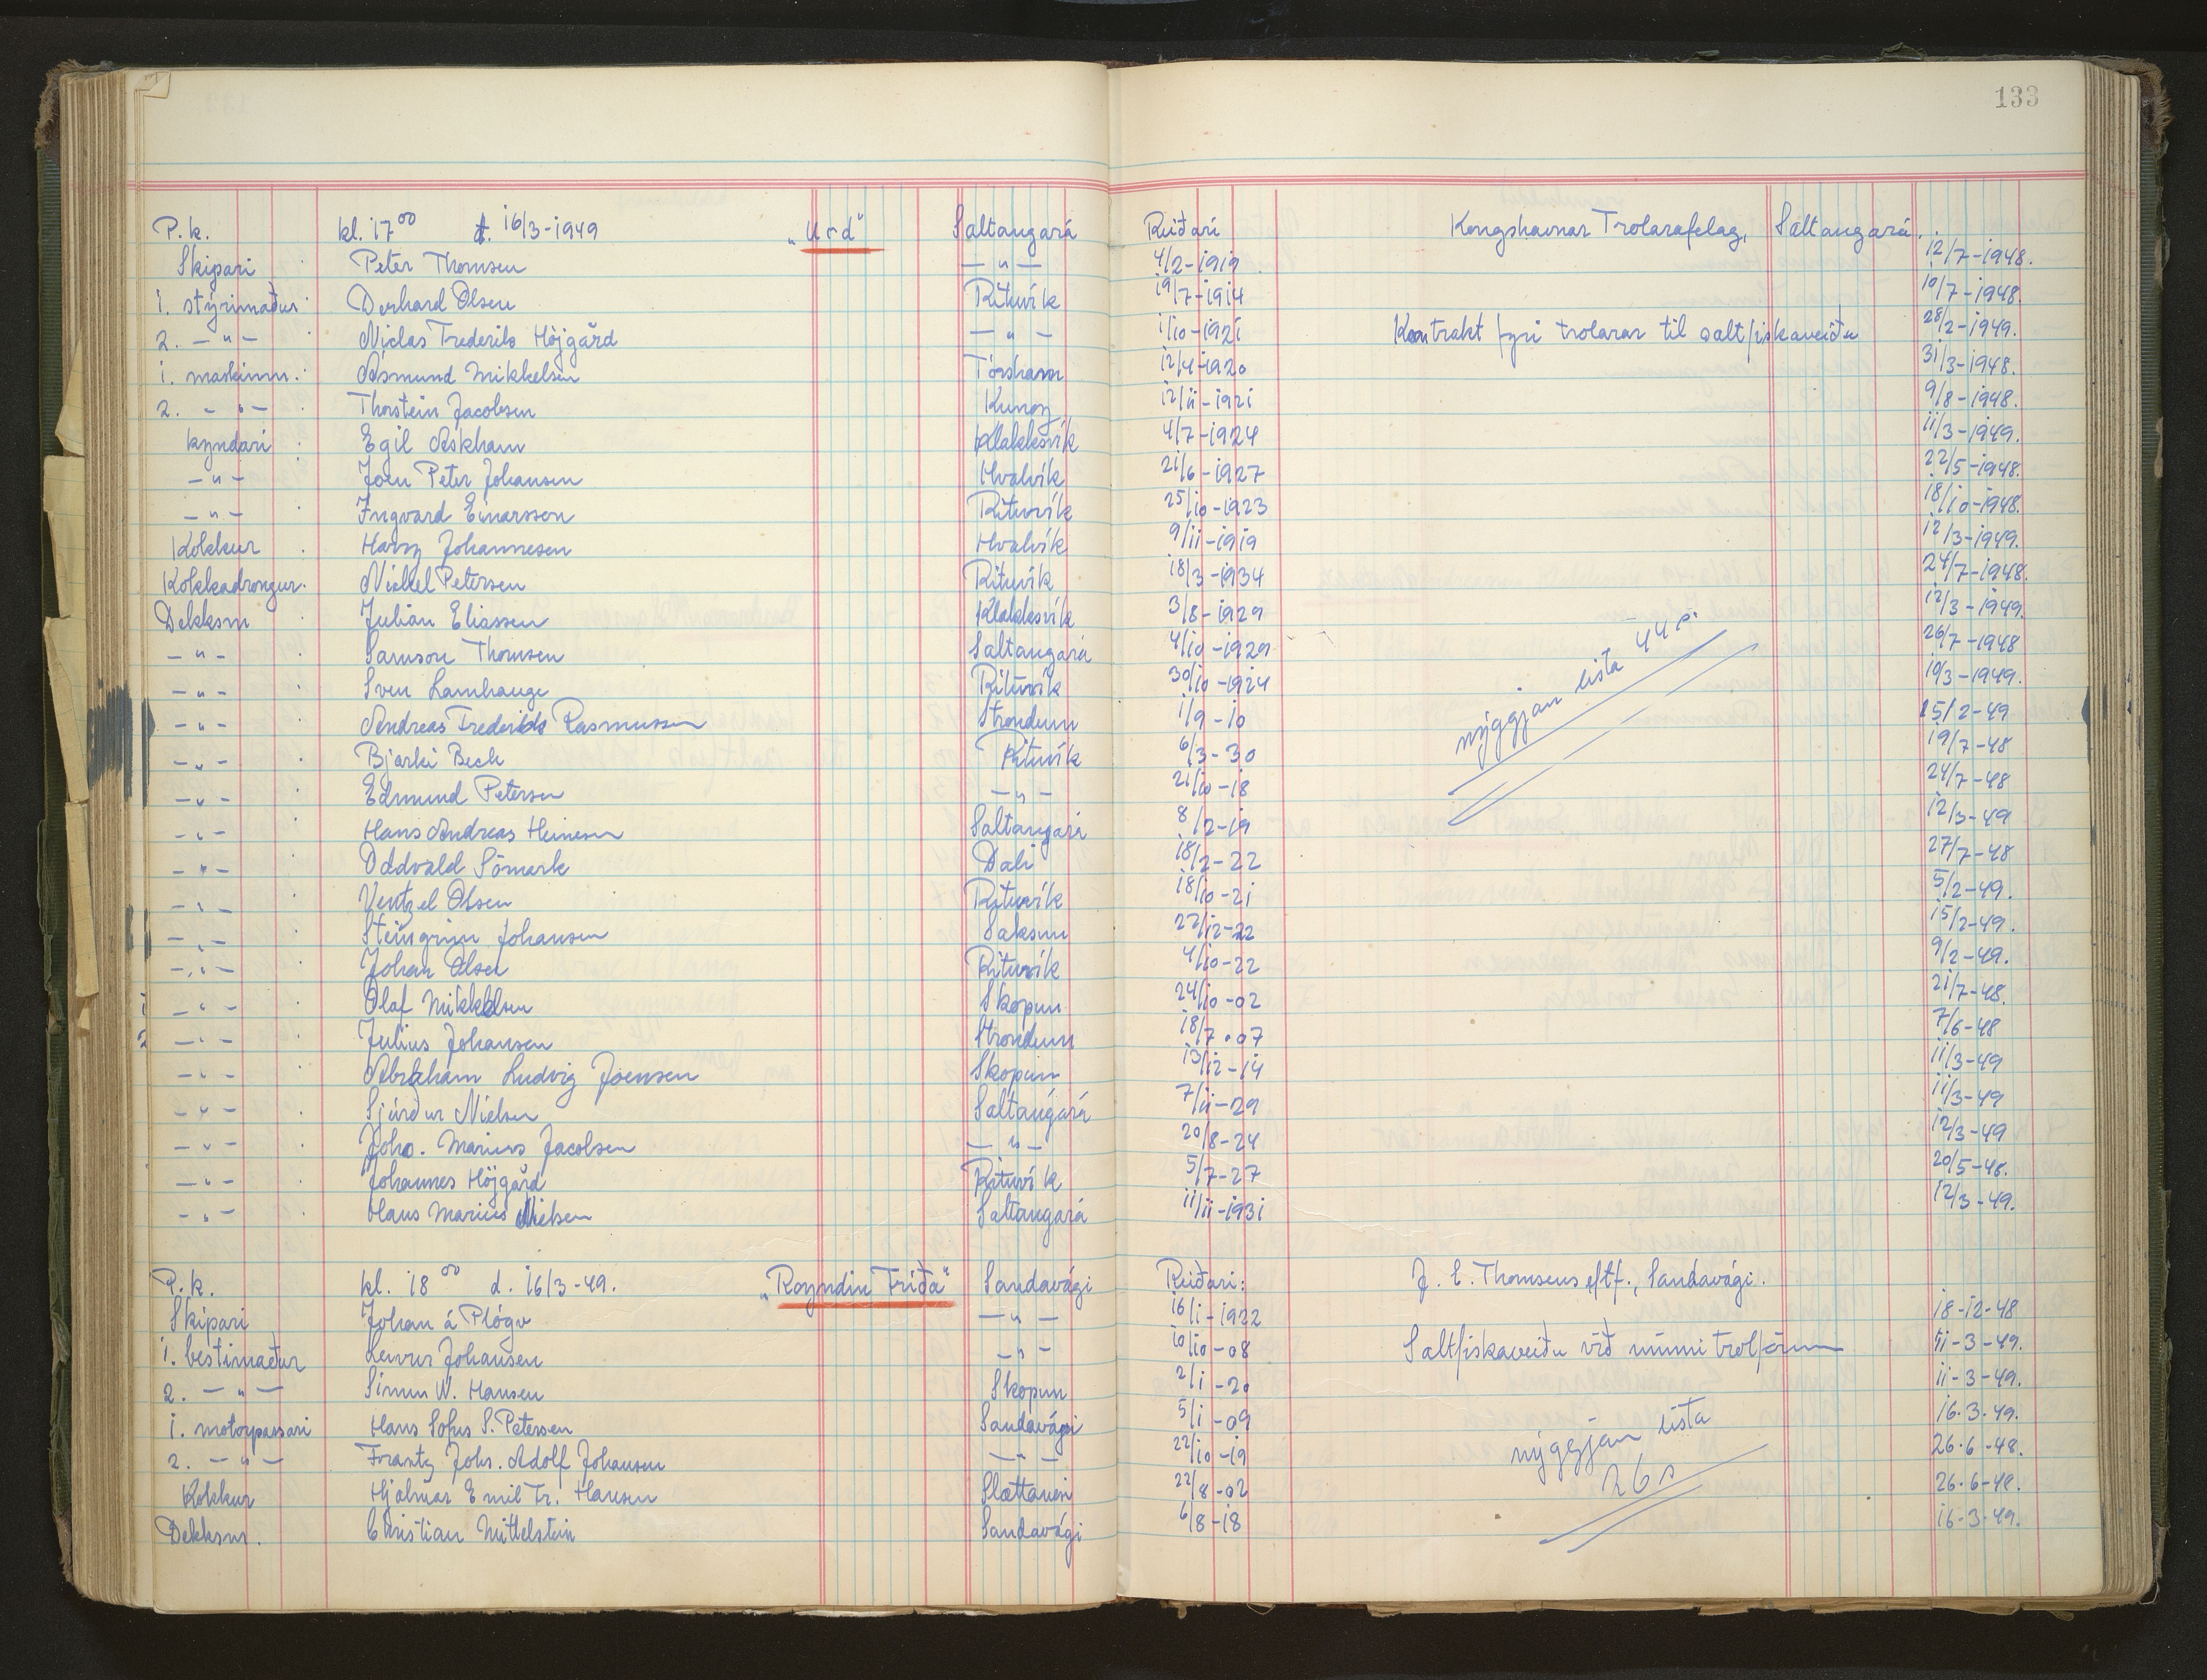 133
P.k. kl. 17⁰⁰ d. 16/3-1949 "Urd" Saltangará Reiðari Kongshavnar Trolarafelag, Saltangará.
Skipari Peter Thomsen — " — 4/2-1919 12/7-1948.
1. stýrimaður Olsen Rituvík 19/7-1914 10/7-1948.
2. — " — Niclas Frederik Höjgård — " — 1/10-1921 Kontrakt fyri trolarar til saltfiskaveiðu 28/2-1949.
1. maskinm. Ásmund Mikkelsen Tórshavn 12/4-1920 31/3-1948.
2. — " — Thorstein Jacobsen Kunoy 12/11-1921 9/8-1948.
kyndari Egil Askham Klakksvík 4/7-1924 11/3-1949.
— " — Joen Peter Johansen Hvalvík 21/6-1927 22/5-1948.
— " — Ingvard Einarsson Rituvík 25/10-1923 18/10-1948.
Kokkur Harry Johannesen Hvalvík 9/11-1919 12/3-1949.
Kokkadrongur Nickel Petersen Rituvík 18/3-1934 24/7-1948.
Dekksm Julian Eliassen Klakksvík 3/8-1929 12/3-1949.
— " — Samson Thomsen Saltangará 4/10-1929 nýggjan lista 44 26/7-1948
— " — Sven Lamhauge Rituvík 30/10-1924 10/3-1949.
— " — Andreas Frederik Rasmussen Strondum 1/9-10 15/2-49
— " — Bjarki Beck Rituvík 6/3-30 19/7-48
— " — Edmund Petersen — " — 21/10-18 24/7-48
— " — Hans Andreas Heinesen Saltangará 8/2-19 12/3-49
— " — Oddvald Sömark Dali 18/2-22 27/7-48
— " — Ventzel Olsen Rituvík 18/10-21 5/2-49.
— " — Steingrim Johansen Saksun 22/12-22 15/2-49.
— " — Johan Olsen Rituvík 4/10-22 9/2-49.
1 — " — Olaf Mikkelsen Skopun 24/10-02 21/7-48.
2 — " — Julius Johansen Strondum 18/7-07 7/6-48
— " — Abraham Ludvig Joensen Skopun 13/12-14 11/3-49
— " — Sjúrður Nielsen Saltangará 7/11-29 11/3-49
— " — Joho. Marius Jacobsen — " — 20/8-24 12/3-49
— " — Johannes Höjgård Rituvík 5/7-27 20/5-48.
— " — Hans Marius Nielsen Saltangará 11/11-1931 12/3-49.
P.k. kl. 18⁰⁰ d. 16/3-49. "Royndin Fríða" Sandavági Reiðari: J. E. Thomsens eftf., Sandavági.
Skipari Johan á Plógv — " — 16/1-1922 18-12-48
1. bestimaður Leivur Johansen — " — 10/10-08 Saltfiskaveiðu við minni trolførum 11-3-49.
2. — " — Simun W. Hansen Skopun 2/1-20 11-3-49.
1. motorpassari Hans Sofus S. Petersen Sandavági 5/1-09 nýggjan lista 16.3.49.
2. — " — Frantz Johs. Adolf Johansen — " — 22/10-19 26 26.6-48.
Kokkur Hjalmar Emil Fr. Hansen Slættanesi 22/8-02 26.6-48.
Dekksm. Christian Mittelstein Sandavági 6/8-18 16-3-49.